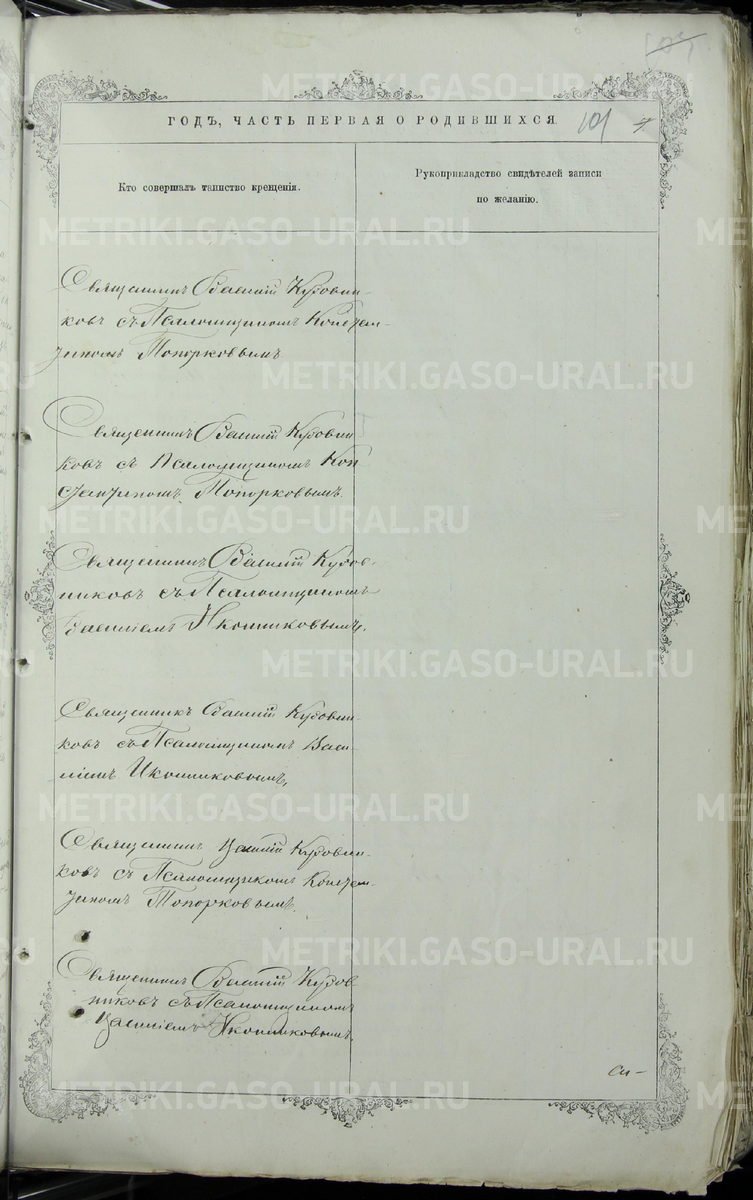 ГОДЪ, ЧАСТЬ ПЕРВАЯ О РОДИВШИХСЯ
101
Кто совершалъ таинство крещенія.
Рукоприкладство свидѣтелей записи
по желанію.
Священникъ Василій Кудовни-
ковъ съ Псаломщикомъ Констан-
тиномъ Топорковымъ
Священникъ Василій Кудовни
ковъ съ Псаломщикомъ Кон
стантиномъ Топорковымъ.
Священникъ Василій Кудов-
никовъ съ Псаломщикомъ
Василіемъ Иконниковымъ.
Священникъ Василій Кудовни-
ковъ съ Псаломщикомъ Васи
ліемъ Иконниковымъ,
Священникъ Василій Кудовни-
ковъ съ Псаломщикомъ Констан-
тиномъ Топорковымъ.
Священникъ Василій Кудов
никовъ съ Псаломщикомъ
Василіемъ Иконниковымъ.
METRIKI.GASO-URAL.RU